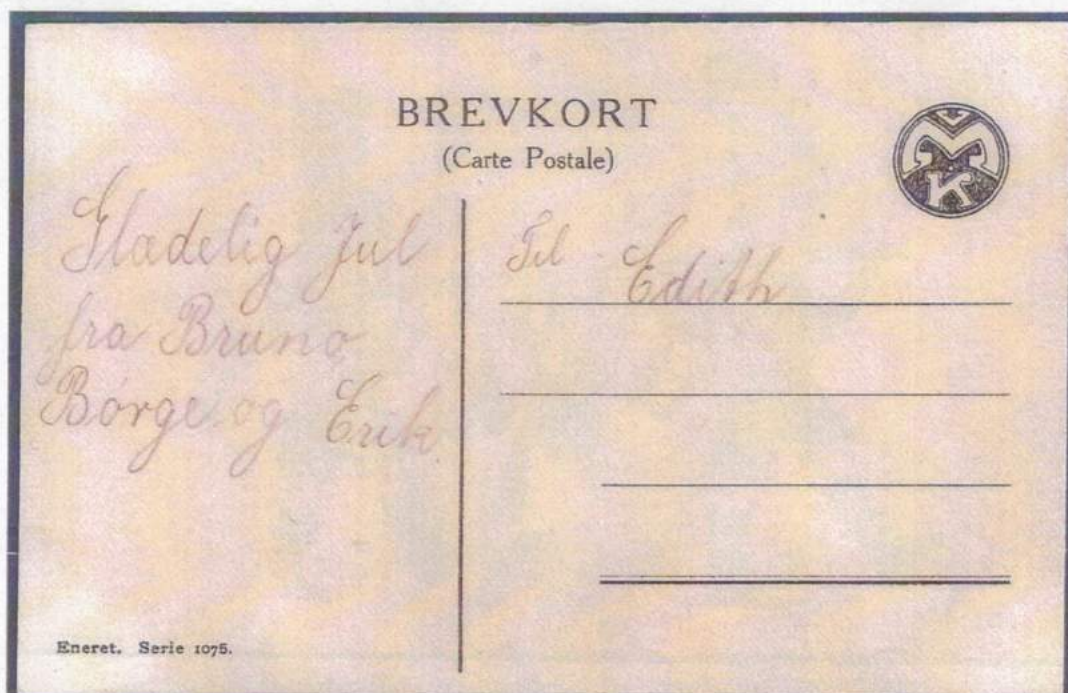 BREVKORT
(Carte Postale)
MK
Glædelig Jul
fra Bruno
Børge og Erik
Til Edith
Eneret. Serie 1075.